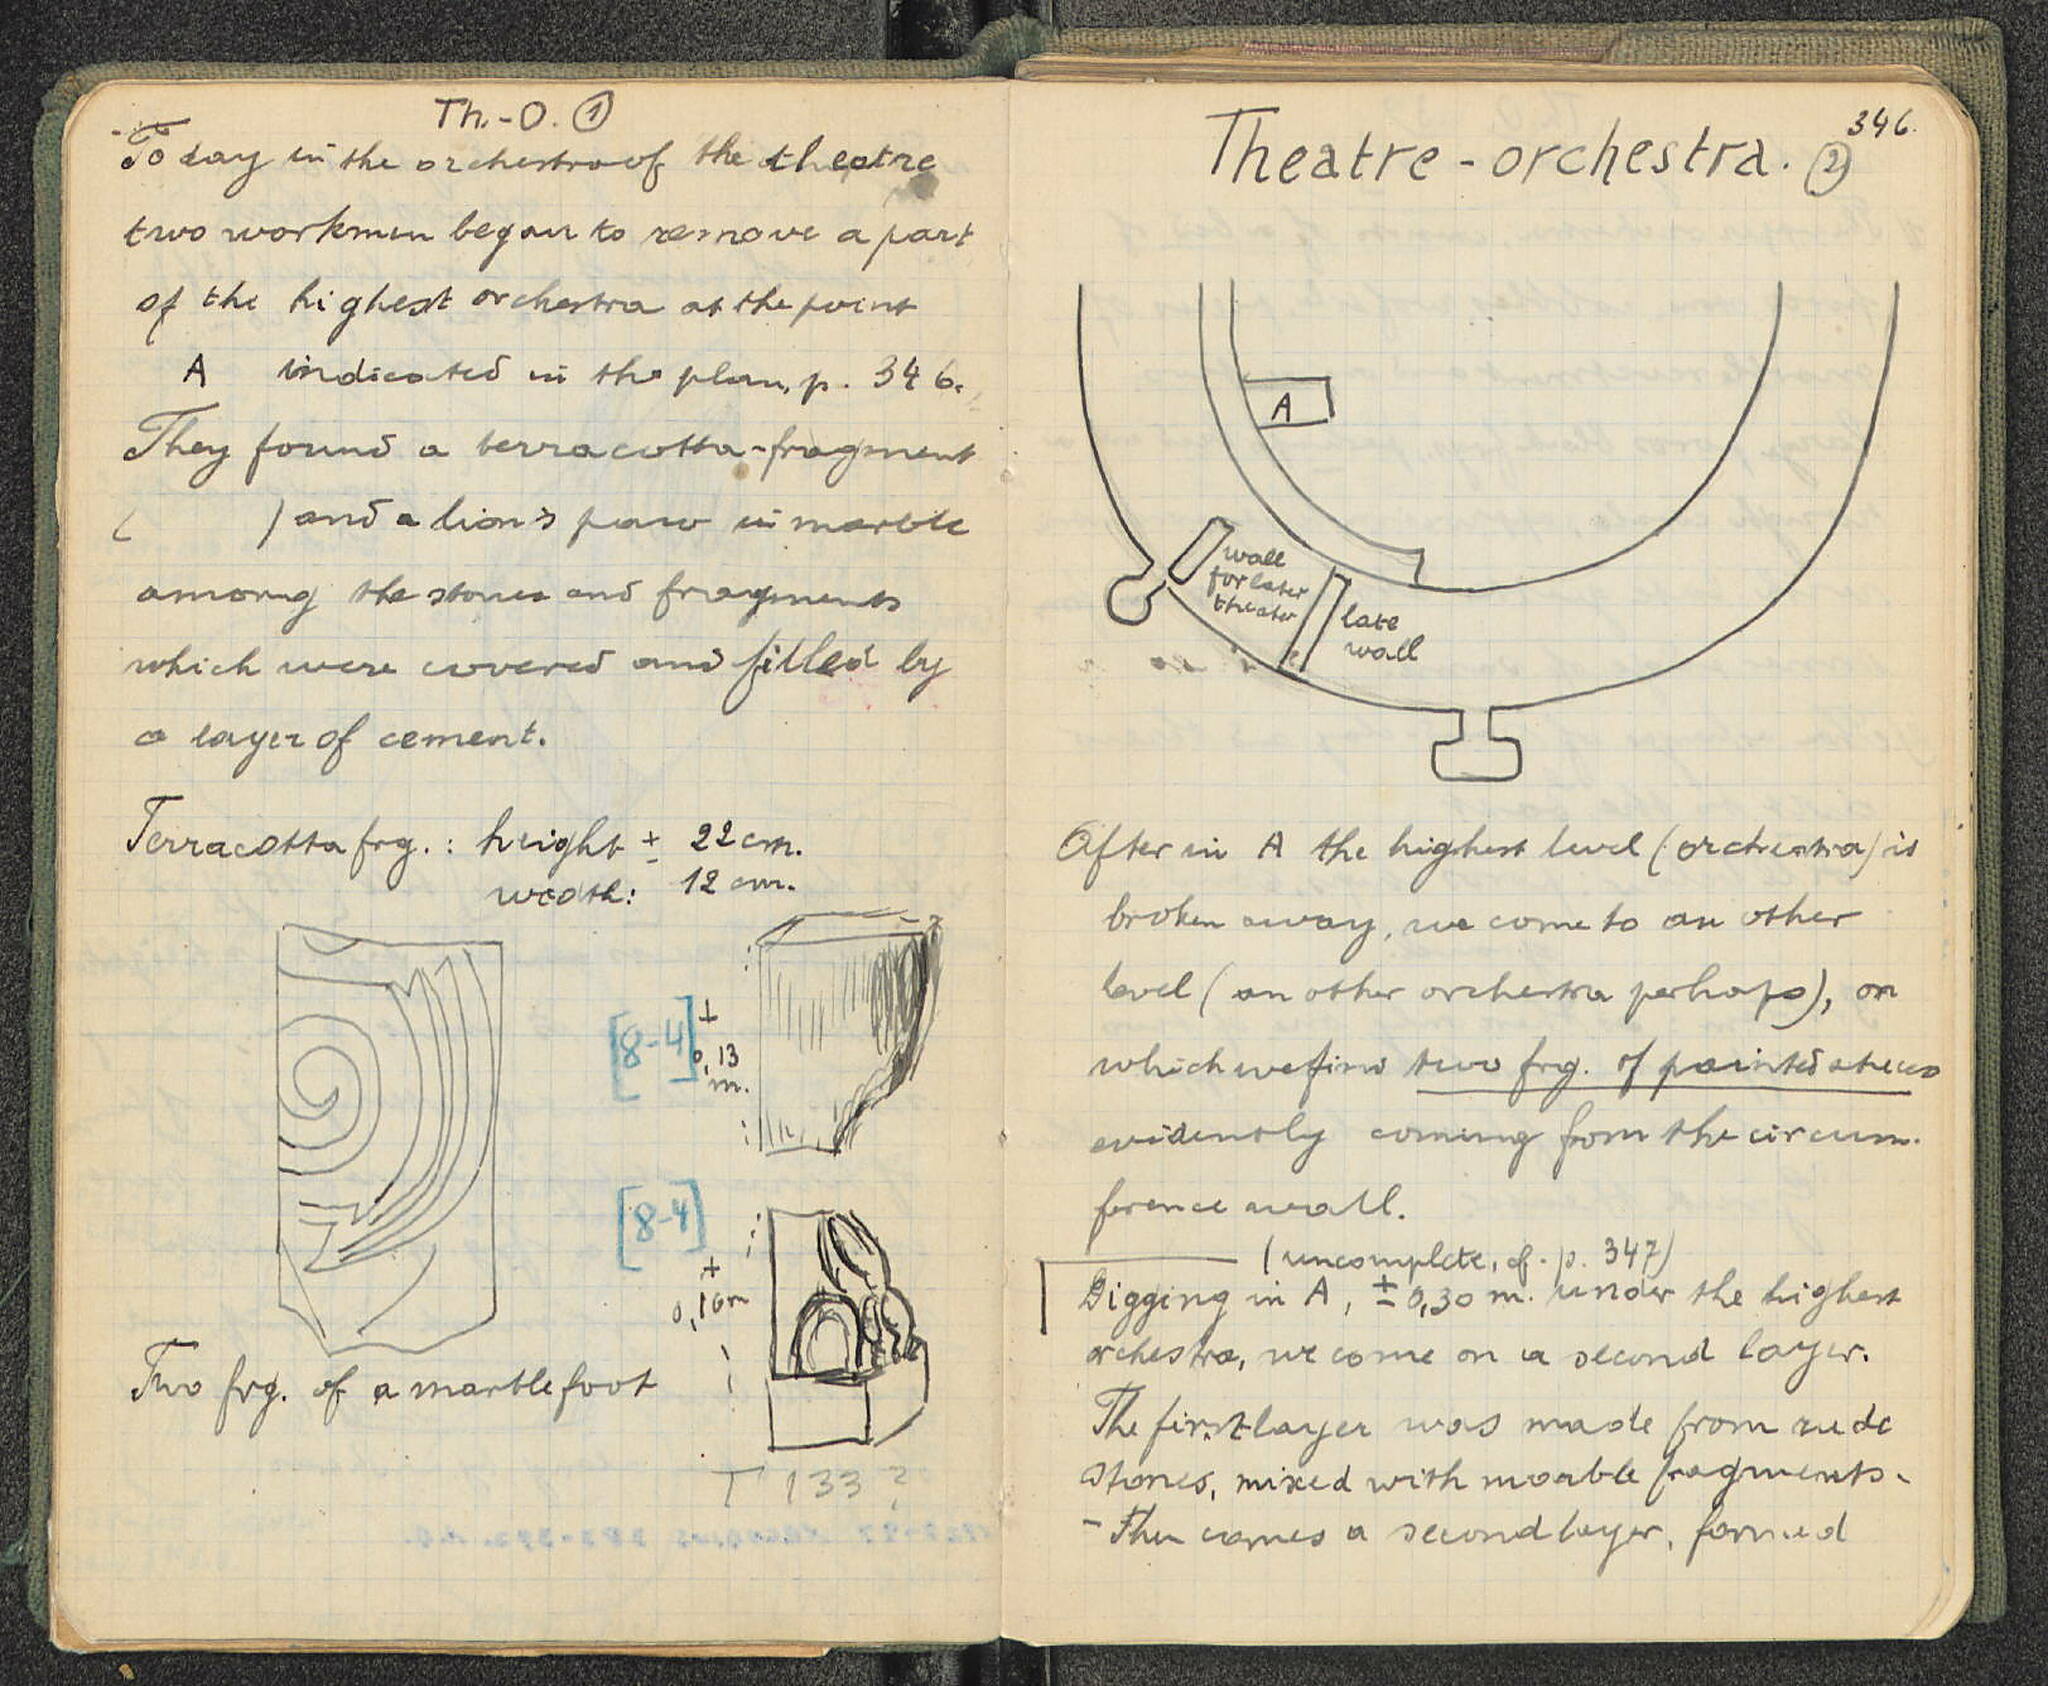 Th.-O. 1
Today in the orchestra of the theatre
two workmen began to remove a part
of the highest orchestra at the point
A indicated in the plan, p. 346.
They found a terracotta-fragment
( ) and a lion's paw in marble
among the stones and fragments
which were covered and filled by
a layer of cement.
Terracotta frg. : height ± 22 cm.
width: 12 cm.
[8-4] ± 0,13 m.
[8-4]
± 0,16 m
Two frg. of a marble foot
T 133 ?
346.
Theatre - orchestra. 2
A
wall
for later
theater
late
wall
After in A the highest level (orchestra) is
broken away, we come to an other
level (an other orchestra perhaps), on
which we find two frg. of painted stucco
evidently coming from the circum-
ference wall.
(uncomplete, cf. p. 347)
Digging in A, ± 0,30 m. under the highest
orchestra, we come on a second layer.
The first layer was made from rude
stones, mixed with marble fragments.
- Then comes a second layer, formed